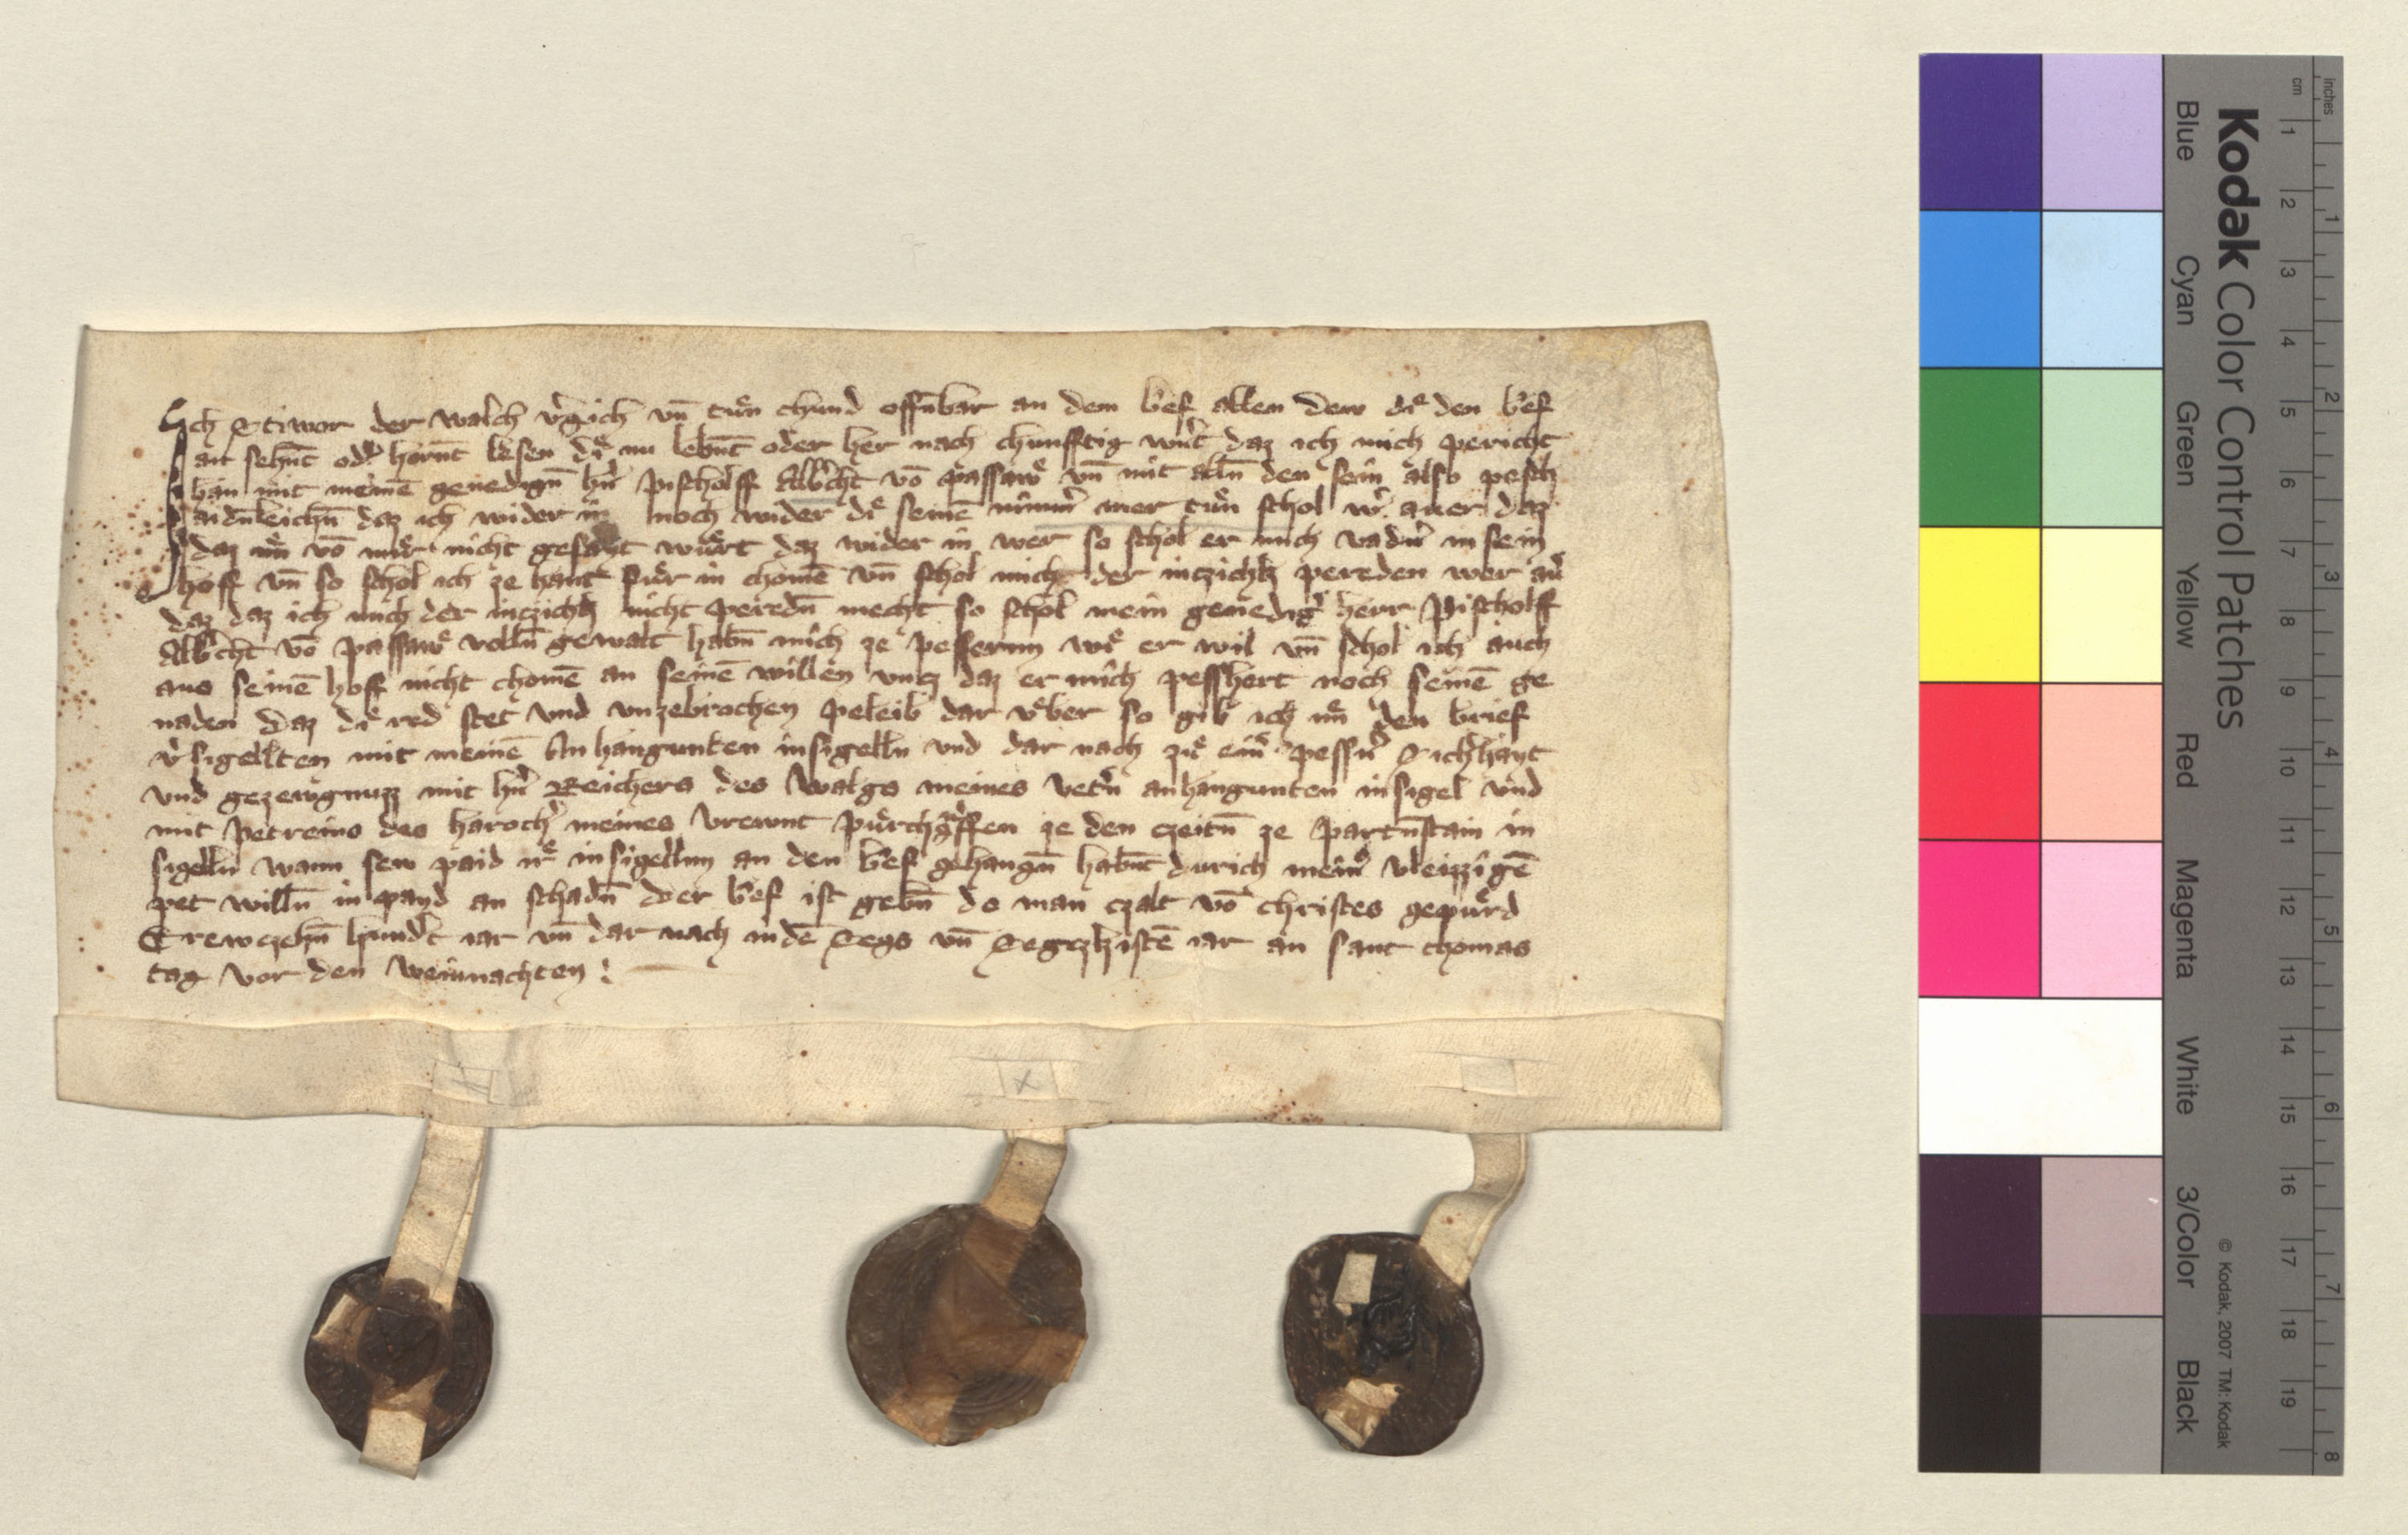 Ich Otiwor der walch v̾gich vn̄ tuͤn chund offn̄bar an dem b̾ef allen den diͤ den b̾ef
an sehn̄t od̾ hoͤrnt lesen diͤ nu lebn̄t oder her nach chunfftig wn̾t daz ich mich pericht
han mit meinē genedign̄ hn̾ Pischolff Alb̾cht vō Passawͤ vn̄ mit alln̄ den sein also pesch
aidn̄leichn̄ daz ich wider in noch wider diͤ seinē nimm̾ mer tuͤn schol w̾ auer daz
daz im vō mir nicht gesagt wuͤrt daz wider in wer so schol er mich vadn̾ in sein
hoff vn̄ so schol ich ze hant fuͤr in chomē vn̄ schol mich der inczicht pereden wer au̾
daz daz ich mich der inczicht nicht peredn̄ mecht so schol mein genedig̾ herr Pischolff
Alb̾cht vō Passawͤ volln̄ gewalt habn̄ mich ze pessernn wiͤ er wil vn̄ schol ich auch
aus seinē hoff nicht chomē an seinē willen vncz daz er mich pesshert noch seinē ge
naden Daz diͤ red stet vnd vnzebrochen peleib dar vͤber so gib ich im den brief
v̾sigellten mit meinē An hangunten insigelln vnd dar nach zuͤ ein̾ pessn̾ Sich̾hayt
vnd gezewgnuzz mit hn̾ Reichers des Walgs meines vetn̾ anhangunten insigel vnd
mit Petreins des haroch̾ meines vrewnt Puͤrchgraͤffen ze den czeitn̄ ze Partn̄stain in
sigelln wann sew paid irͤ insigellnn an den b̾ef gehangn̄ habn̄t durich mein̾ vleizzigē
pet willn̄ in payd an schadn̄ der b̾ef ist gebn̄ do man czalt vō christes gepuͤrd
Trewczehn̄ hund̾t iar vn̄ dar nach in dē Segs vn̄ Segczkistē iar an sant thomas
tag vor den Weinnachten
Kodak Color Control Patches
Blue Cyan Green Yellow Red Magenta White 3/Color Black
inches 1 2 3 4 5 6 7 8
cm 1 2 3 4 5 6 7 8 9 10 11 12 13 14 15 16 17 18 19
© Kodak, 2007 TM: Kodak